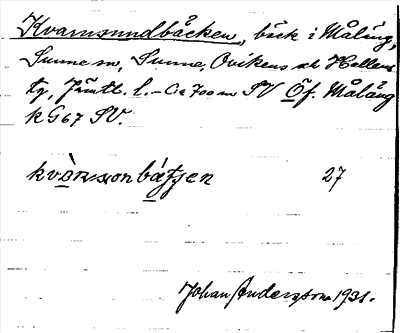 Kvarnsundbäcken, bäck i Målång,
Sunne sn, Sunne, Ovikens o. Hallens
tg, Jämtl. l. – Ca 700 m SV Öf. Målång
k G67 SV.
27
Johan Anderzson 1931.